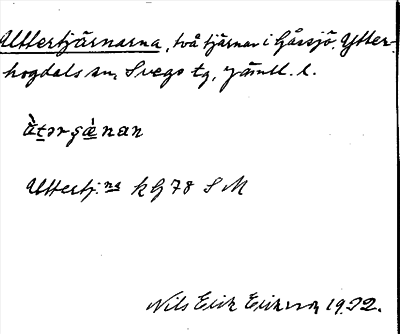 Uttertjärnarna, två tjärnar i Gåssjö, Ytter-
hogdals sn, Svegs tg, Jämtl. l.
ùtərʂæ̀nan
Uttertj:na kG 78 S M
Nils Erik Eriksson 1932.